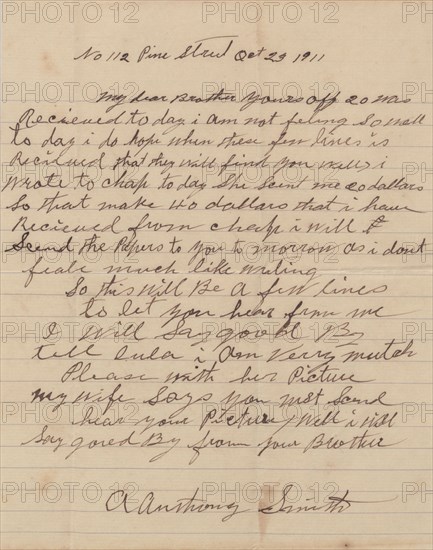 No 112 Pine Street Oct 29 1911
My dear Brother yours off 20 was
Recieved to day i am not feling so well
to day i do hope when these few lines is
Recieved that they will find you well i
wrote to chap to day she sent me 20 dollars
so that make 40 dollars that i have
Recieved from chap i will
Send the Papers to you to morrow as i dont
feale much like writing
So this will Be a few lines
to let you hear from me
I will Say goodd By
tell lula i am verry mutch
Please with her Picture
my wife Says you mst Send
hear your Picture Well i will
Say gored By from your Brother
A Anthony Smith